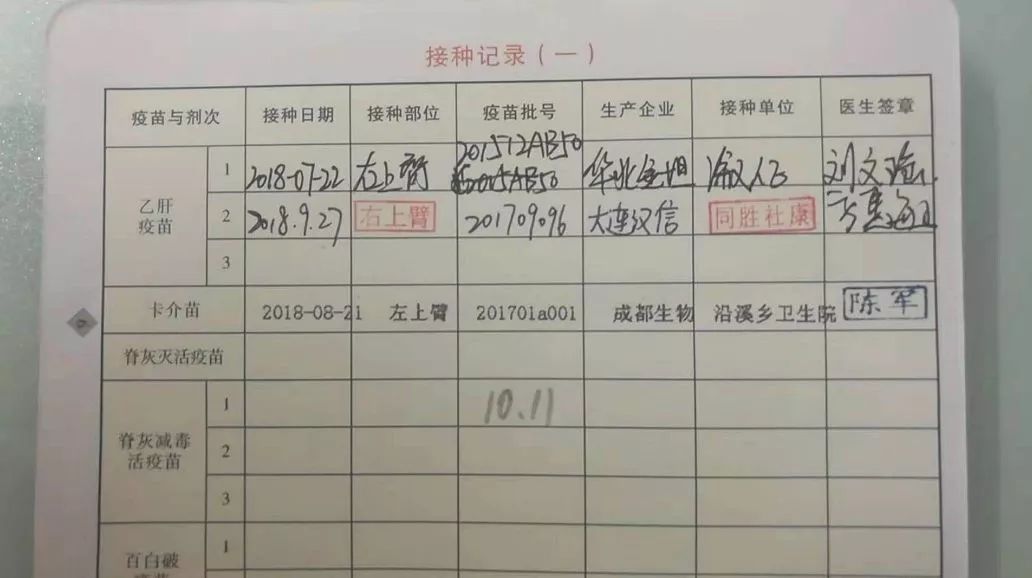 接种记录(一)
疫苗与剂次 接种日期 接种部位 疫苗批号 生产企业 接种单位 医生签章
乙肝疫苗
1 2018-07-22 左上臂 201512AB50 华北金坦
2 2018.9.27 右上臂 201709096 大连汉信 同胜社康
3
卡介苗 2018-08-21 左上臂 201701a001 成都生物 沿溪乡卫生院 陈军
脊灰灭活疫苗
脊灰减毒
活疫苗
1 10.11
2
3
百白破
1